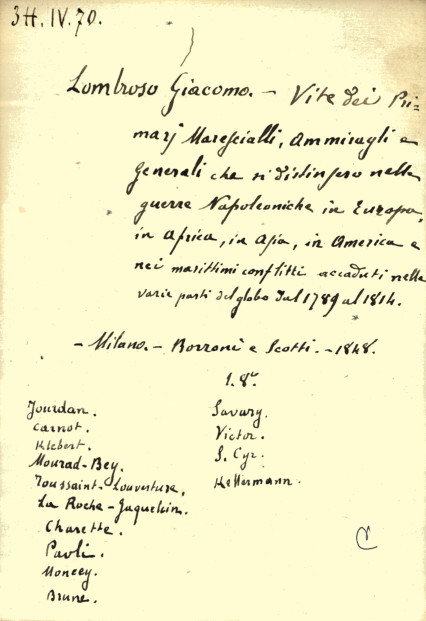 3H. IV. 70.
Lombroso Giacomo. - Vite dei Pri=
marj Marescialli, Ammiragli e
Generali che si distinsero nelle
guerre Napoleoniche in Europa,
in Africa, in Asia, in America e
nei marittimi conflitti accaduti nelle
varie parti del globo dal 1789 al 1814.
- Milano. - Borroni e Scotti. - 1848.
1. 8º
Jourdan.
Carnot.
Klebert.
Mourad-Bey.
Toussaint-Louverture.
La Roche-Jaquelein.
Charette.
Paoli.
Moncey.
Brune.
Savary.
Victor.
S. Cyr.
Kellermann.